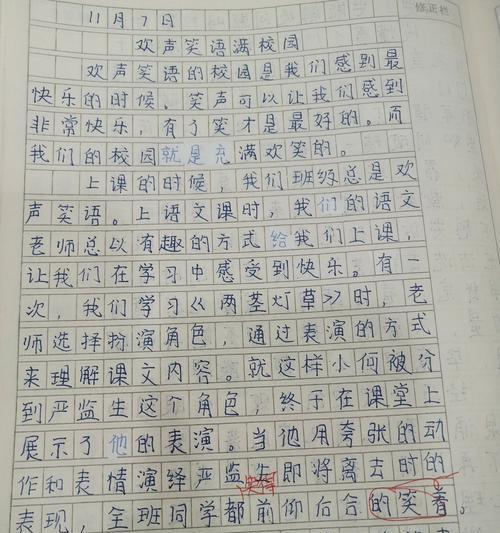 修正栏
11月7日
欢声笑语满校园
欢声笑语的校园是我们感到最
快乐的时候、笑声可以让我们感到
非常快乐，有了笑才是最好的。而
我们的校园就是充满欢笑的。
上课的时候，我们班级总是欢
声笑语。上语文课时，我们的语文
老师总以有趣的方式给我们上课，
让我们在学习中感受到快乐。有一
次，我们学习《两茎灯草》时，老
师选择扮演角色，通过表演的方式
来理解课文内容。就这样小何被分
到严监生这个角色，终于在课堂上
展示了他的表演。当他用夸张的动
作和表情演绎严监生即将离去时的
表现，全班同学都前仰后合的笑着。